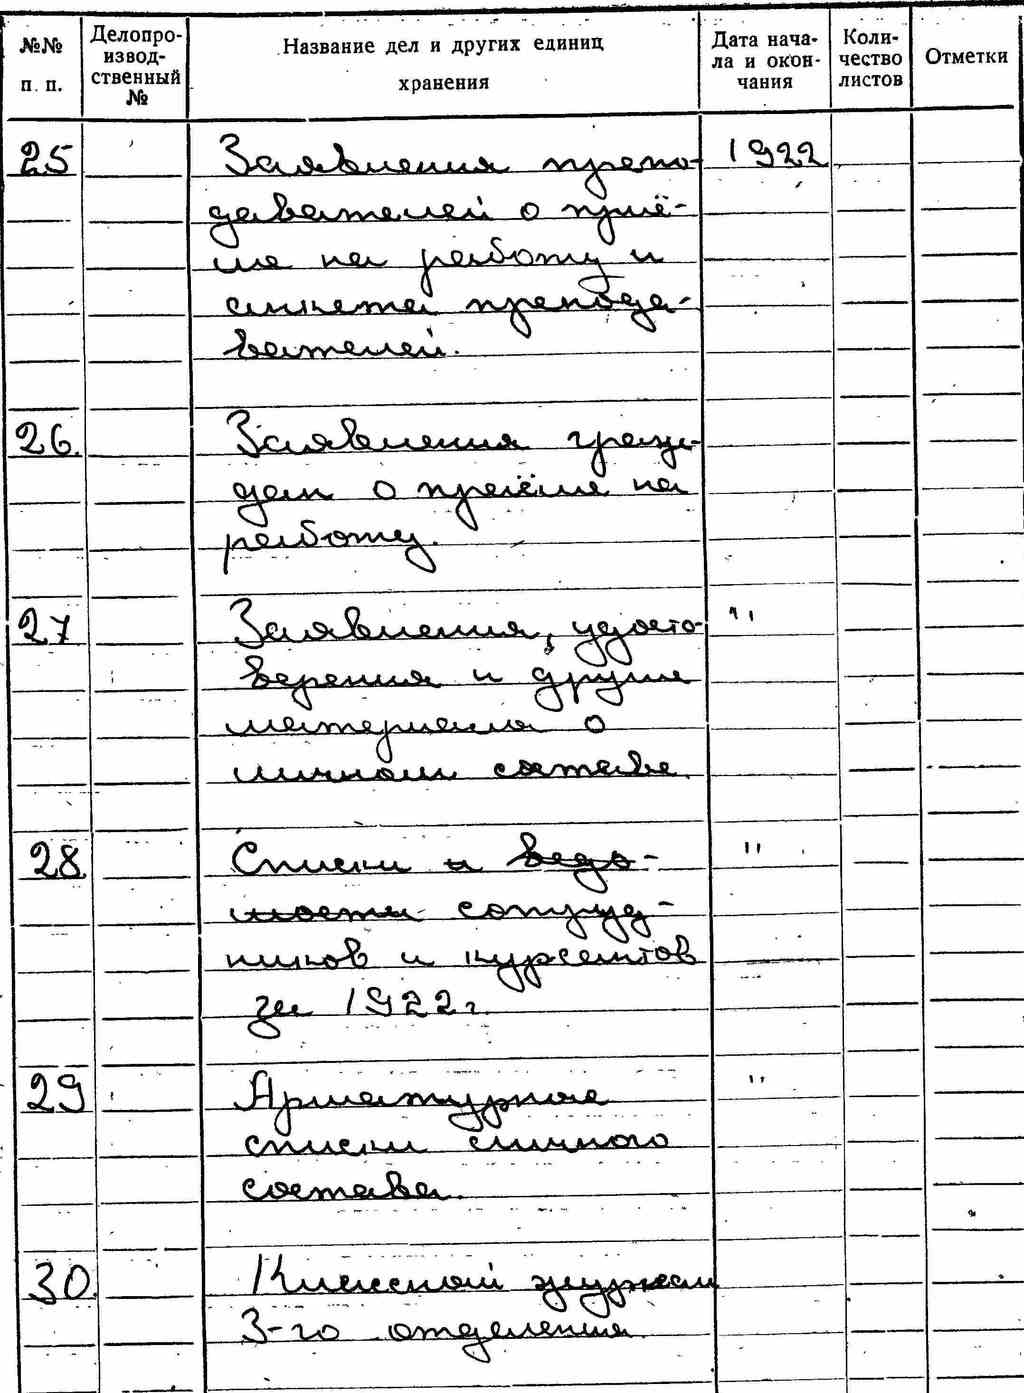 №№ п. п.
Делопро-
извод-
ственный
№
Название дел и других единиц
хранения
Дата нача-
ла и окон-
чания
Коли-
чество
листов
Отметки
25 Заявления препо- 1922
давателей о приё-
ме на работу и
анкета препода-
вателей.
26. Заявления граж-
дан о приёме на
работу.
27 Заявления, удосто- "
верения и другие
материала о
личном составе.
28 Списки и ведо- "
мости сотруд-
ников и курсантов
за 1922 г.
29 Арматурное "
списки личного
состава.
30. Классной журнал
3-го отделения.